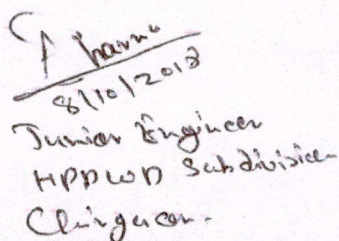 8/10/2018
Junior Engineer
HPPWD Subdivision
Chirgaon.